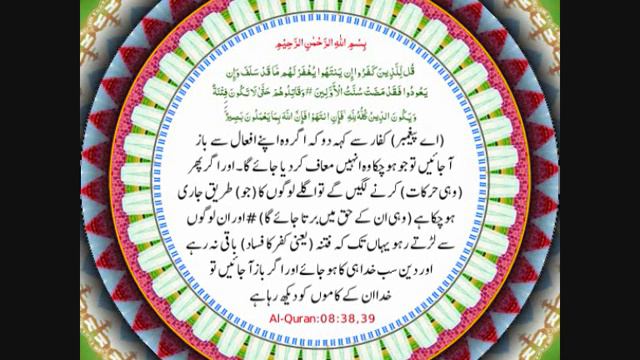 بِسْمِ اللهِ الرَّحْمٰنِ الرَّحِيْمِ
قُل لِلَّذِينَ كَفَرُوا إِن يَنتَهُوا يُغْفَرْ لَهُم مَّا قَدْ سَلَفَ وَإِن
يَعُودُوا فَقَدْ مَضَتْ سُنَّتُ الْأَوَّلِينَ # وَقَاتِلُوهُمْ حَتَّىٰ لَا تَكُونَ فِتْنَةٌ
وَيَكُونَ الدِّينُ كُلُّهُ لِلَّهِ ۚ فَإِنِ انتَهَوْا فَإِنَّ اللَّهَ بِمَا يَعْمَلُونَ بَصِيرٌ
(اے پیغمبر) کفار سے کہہ دو کہ اگر وہ اپنے افعال سے باز
آجائیں تو جو ہوچکا وہ انہیں معاف کردیا جائے گا۔ اور اگر پھر
(وہی حرکات) کرنے لگیں گے تو اگلے لوگوں کا (جو) طریق جاری
ہوچکا ہے (وہی ان کے حق میں برتا جائے گا) # اور ان لوگوں
سے لڑتے رہو یہاں تک کہ فتنہ (یعنی کفر کا فساد) باقی نہ رہے
اور دین سب خدا ہی کا ہوجائے اور اگر باز آجائیں تو
خدا ان کے کاموں کو دیکھ رہا ہے
Al-Quran:08:38,39